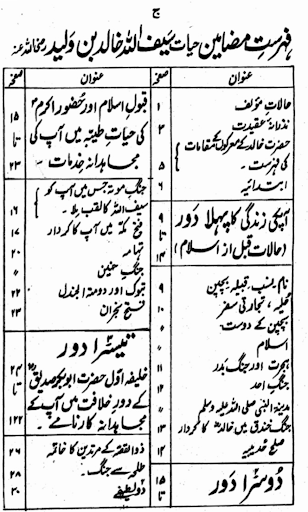 ج
فہرستِ مضامین حیات سیف اللہ خالد بن ولید رضی اللہ عنہ
عنوان صفحہ
حالاتِ مؤلف ۱
نذرانۂ عقیدت ۲
حضرت خالد کے معرکوں کے مقامات
کی فہرست۔ ۵
ابتدائیہ ۶
آپکی زندگی کا پہلا دَور ۹
تا
(حالات قبل از اسلام) ۱۴
نام، نسب، قبیلہ، بچپن ۹
حلیہ، تجارتی سفر ۱۰
بچپن کے دوست "
اسلام "
ہجرت اور جنگِ بدر ۱۱
جنگ احد ۱۲
مدینۃ النبی صلی اللہ علیہ وسلم "
جنگ خندق میں خالد کا کردار ۱۳
صلح حدیبیہ ۱۴
دُوسرا دَور ۱۵
تا
عنوان صفحہ
قبولِ اسلام اور حضور اکرم ۱۵
کی حیاتِ طیبہ میں آپ کی تا
مجاہدانہ خدمات ۲۳
جنگِ موتہ جس میں آپ کو
سیف اللہ کا لقب ملا۔ ۱۶
فتح مکہ میں آپ کا کردار ۱۷
تہامہ ۲۰
جنگِ حنین "
تبوک اور دومۃ الجندل ۲۲
فتح نجران ۲۳
تیسرا دور
خلیفہ اوّل حضرت ابوبکر صدیق ۲۴
کے دورِ خلافت میں آپ کے تا
مجاہدانہ کارنامے۔ ۱۲۲
ذوالقصہ کے مرتدین کا خاتمہ ۲۶
طلیحہ سے جنگ۔ ۲۸
دو لطیفے ۳۰